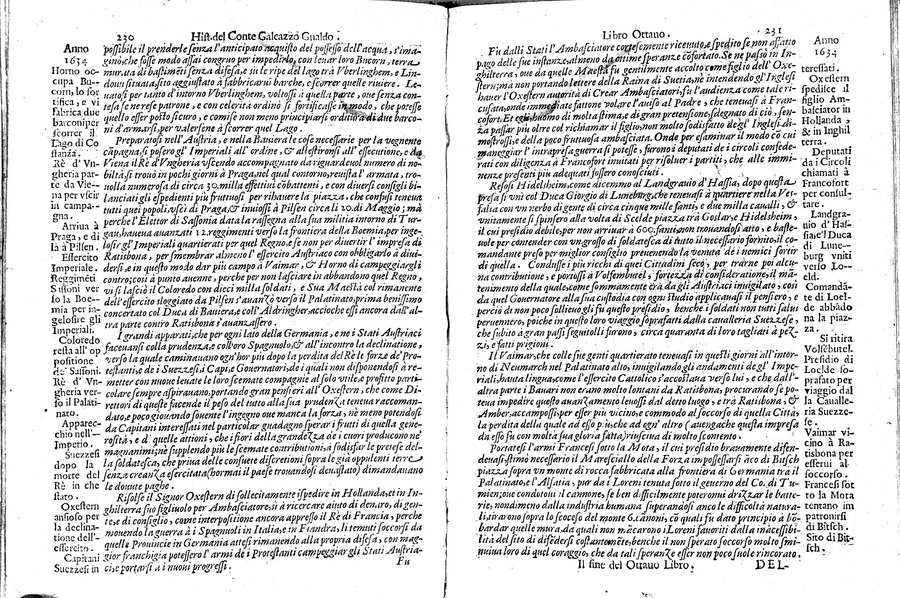 230 Hist. del Conte Galeazzo Gualdo.
Anno
1634
Horno oc-
cupa Bu-
corn, lo for
tifica, e vi
fabrica due
barconi per
scorrer il
Lago di Co
stanza.
Rè d' Vn-
gheria par-
te da Vie-
na per vscir
in campa-
gna.
Arriua à
Praga, e di
là à Pilsen.
Esercito
Imperiale.
Reggimēti
Sassoni ver
so la Boe-
mia per in-
gelosire gl'
Imperiali.
Coloredo
resta all' op
positione
de' Sassoni.
Rè d' Vn-
gheria ver-
so il Palati-
nato.
Apparec-
chio nell'-
Imperio.
Suezzesi
dopo la
morte del
Rè in che
stato.
Oxestern
ansioso per
la declina-
tione dell'-
essercito.
Capitani
Suezzesi in
possibile il prenderle senza l'anticipato acquisto del possesso dell'acqua, s'ima-
ginò, che fosse modo assai congruo per impedirlo, con leuar loro Bucorn, terra
murata di bastimēti senza difesa, e in le ripe del lago trà Vberlinghem, e Lin-
dou situata, sito aggiustato à fabbricarui barche, e scorrer quelle riuiere. Le-
uatosi per tanto d'intorno Vberlinghem, voltossi à questa parte, one senza con-
tesa se le rese patrone, e con celerità ordinò si fortificasse in modo, che potesse
quello esser posto sicuro, e comise non meno principiarsi ordinò di due barco-
ni d'armarsi, per valersene à scorrer quel Lago.
Preparatosi nell'Austria, e nella Bauiera le cose necessarie per la vegnente
cāpagna, si posero gl' Imperiali all' ordine, & all'essecutione, e da
Viena il Rè d'Vngheria vscendo accompagnato da riguardeuol numero di no-
biltà si trouò in pochi giorni à Praga, nel qual contorno, reuista l'armata, tro-
uolla numerosa di circa 30. mila effettiui cōbattenti, e con diuersi consigli bi-
lanciati gli espedienti più fruttuosi per rihauere la piazza, che confusi teneua
tutti quei popoli, vscì di Praga, & inuiossi à Pilsen circa li 20. di Maggio; mà
perche l'Elettor di Sassonia data la rassegna alla sua militia intorno di Tur-
gau, haueua auanzati 12. reggimenti verso la frontiera della Boemia, per inge-
losir gl' Imperiali quartierati per quel Regno, e se non per diuertir l'impresa di
Ratisbona, per smembrar almeno l'essercito Austriaco con obligarlo à diui-
dersi, e in questo modo dar più campo à Vaimar, & Horno di campeggiargli
contro; così à punto auenne, perche non lasciando in abbandono quel Regno,
vi si lasciò il Coloredo con dieci mila soldati, e Sua Maestà col rimanente
dell'essercito sloggiato da Pilsen s'auanzò verso il Palatinato, prima benissimo
concertato col Duca di Bauiera, e coll'Aldringher, acciòche essi ancora dall'al-
tra parte contro Ratisbona s'auanzassero.
I grandi apparati, che per ogni lato della Germania, e ne i Stati Austriaci
faceuansi colla prudenza, e coll'oro Spagnuolo, & all'incontro la declinatione,
verso la quale caminauano ogn'hor più dopo la perdita del Rè le forze de' Pro-
testanti, e de i Suezzesi, i Capi, e Gouernatori, de i quali non disponendosi à ri-
metter con nuoue leuate le loro scemate compagnie al solo vtile, e profitto parti-
colare sempre aspirauano, portando gran pensieri all'Oxestern, che come Di-
rettori di queste facende il peso del tutto alla sua prudenza teneua raccoman-
dato, e poco giouando souente l'ingegno oue manca la forza, nè meno potendosi
da Capitani interessati nel particolar guadagno sperar i frutti di quella gene-
rosità, e di quelle attioni, che i fiori della grandezza de i cuori producono ne'
magnanimi; nè supplendo più le scemate contributioni, à sodisfar le pretese del-
la soldatesca, che priua delle consuete discretioni sopra le già opulenti terre,
senza creanza esercitata (hormai il paese trouandosi deuastato) dimandauano
le douute paghe.
Risolse il Signor Oxestern di sollecitamente ispedire in Hollanda, et in In-
ghilterra suo figliuolo per Ambasciatore, sì à ricercare aiuto di denaro, di gen-
te, e di consiglio, come interpositione ancora appresso il Rè di Francia, perche
mouendo la guerra à i Spagnuoli in Italia, e in Fiandra, li tenuti soccorsi da
quelle Prouincie in Germania attesi rimanendo alla propria difesa, con mag-
gior franchigia potessero l'armi de i Protestanti campeggiar gli Stati Austria-
ci, e portarsi à i nuoui progressi.
Fu
Libro Ottauo. 231
Fu dalli Stati l'Ambasciatore cortesemente riceuuto, e spedito se non affatto
pago delle sue instanze, almeno da ottime speranze cōfortato. Se ne passò in In-
ghilterra, oue da quelle Maestà fu gentilmente accolto come figlio dell'Oxe-
stern; mà non portando lettere della Raina di Suetia, nè intendendo gl'Inglesi
hauer l'Oxestern autorità di Crear Ambasciatori, fù l'audienza come tale ri-
cusata, onde immediate fattone volare l'auiso al Padre, che teneuasi à Fran-
cofort. Et egli huomo di molta stima, e di gran pretensione, sdegnato di ciò, sen-
za passar più oltre col richiamar il figlio, non molto sodisfatto degl' Inglesi, di-
mostrossi, e della poco fruttuosa ambasciata. Onde per esaminar il modo cō cui
maneggiar l'intrapresa guerra si potesse, furono i deputati de i circoli confede-
rati con diligenza à Francofort inuitati per risoluer i partiti, che alle immi-
nenze presenti più adequati fossero conosciuti.
Resosi Hidelsheim, come dicemmo al Landgrauio d'Hassia, dopo questa
presa si vnì col Duca Giorgio di Luneburg, che teneuasi à quartiere nella Vest-
falia con vn nerbo di gente di circa cinque mille fanti, e due milla caualli, &
vnitamente si spinsero alla volta di Scelde piazza trà Goslar, e Hidelsheim,
il cui presidio debile, per non arriuar à 600. fanti, non trouandosi atto, e baste-
uole per contender con vn grosso di soldatesca di tutto il necessario fornito, il co-
mandante preso per miglior consiglio preuenendo la venuta de i nemici sortir
di quella. Condusse i più ricchi di quei Cittadini seco, per trarne poi alcu-
na contributione, e portossi à Volfembutel, fortezza di consideratione, il ma-
tenimento della quale, come sommamente era da gli Austriaci inuigilato, così
da quel Gouernatore alla sua custodia con ogni studio applicauasi il pensiero, e
perciò di non poco sollieuo gli fu questo presidio, benche i soldati non tutti salui
peruennero, poiche in questo loro viaggio soprafatti dalla caualleria Suezzese,
che diuersi à gran passi seguitolli furono, circa quaranta di loro tagliati à pez-
zi, e fatti prigioni.
Il Vaimar, che colle sue genti quartierato teneuasi in questi giorni all'intor-
no di Neumarch nel Palatinato alto, inuigilando gli andamenti degl' Impe-
riali, hauuta lingua, come l'essercito Cattolico s'accostaua verso lui, e che dall'-
altra parte i Bauari non erano molto lontani da Ratisbona, procurando se po-
teua impedire questo auanzamento leuossi dal detto luogo, e trà Ratisbona, &
Amber, accampossi, per esser più vicino, e commodo al soccorso di quella Città,
la perdita della quale ad esso più, che ad ogn' altro (auengache questa impresa
da esso fu con molta sua gloria fatta) riusciua di molto scontento.
Portatesi l'armi Francesi sotto la Mota, il cui presidio brauamente difen-
deuasi, stimò necessario il Maresciallo della Forza impossessarsi, ico di Bitsch
piazza sopra vn monte di rocca fabbricata alla frontiera di Germania trà il
Palatinato, e l'Alsatia, pur da i Loreni tenuta sotto il gouerno del Co. di Tu-
mien; oue condotoni il cannone, se ben difficilmente poteronui drizzar le batte-
rie, nondimeno dalla industria humana superandosi anco le difficoltà natura-
li, tirarono sopra lo scoscesso del monte 6. cānoni, cō quali fu dato principio à bō-
bardar quelle mura, da quali non mācarono i Loreni fauoriti dalla inaccessibi-
lità del sito di difendersi costantemēte; benche il non sperato soccorso molto smi-
nuiua loro di quel coraggio, che da tali speranze esser non puole rincorato.
Il fine del Ottauo Libro. DEL-
Anno
1634
teressati.
Oxestern
spedisce il
figlio Am-
basciator in
Hollanda,
& in Inghil
terra.
Deputati
da i Circoli
chiamati à
Francofort
per consul-
tare.
Landgra-
uio d'Has-
sia, e'l Duca
di Lune-
burg vniti
verso Lo-
eld.
Comandā-
te di Loel-
de abbādo
na la piaz-
za.
Si ritira
Volfēbutel.
Presidio di
Loelde so-
prafaso per
viaggio dal
la Cauaelle-
ria Suezze-
se.
Vaimar vi-
cino à Ra-
tisbona per
esserui al
soccorso.
Francesi sot
to la Mota
tentano im
patronirsi
di Bitsch.
Sito di Bit-
sch.